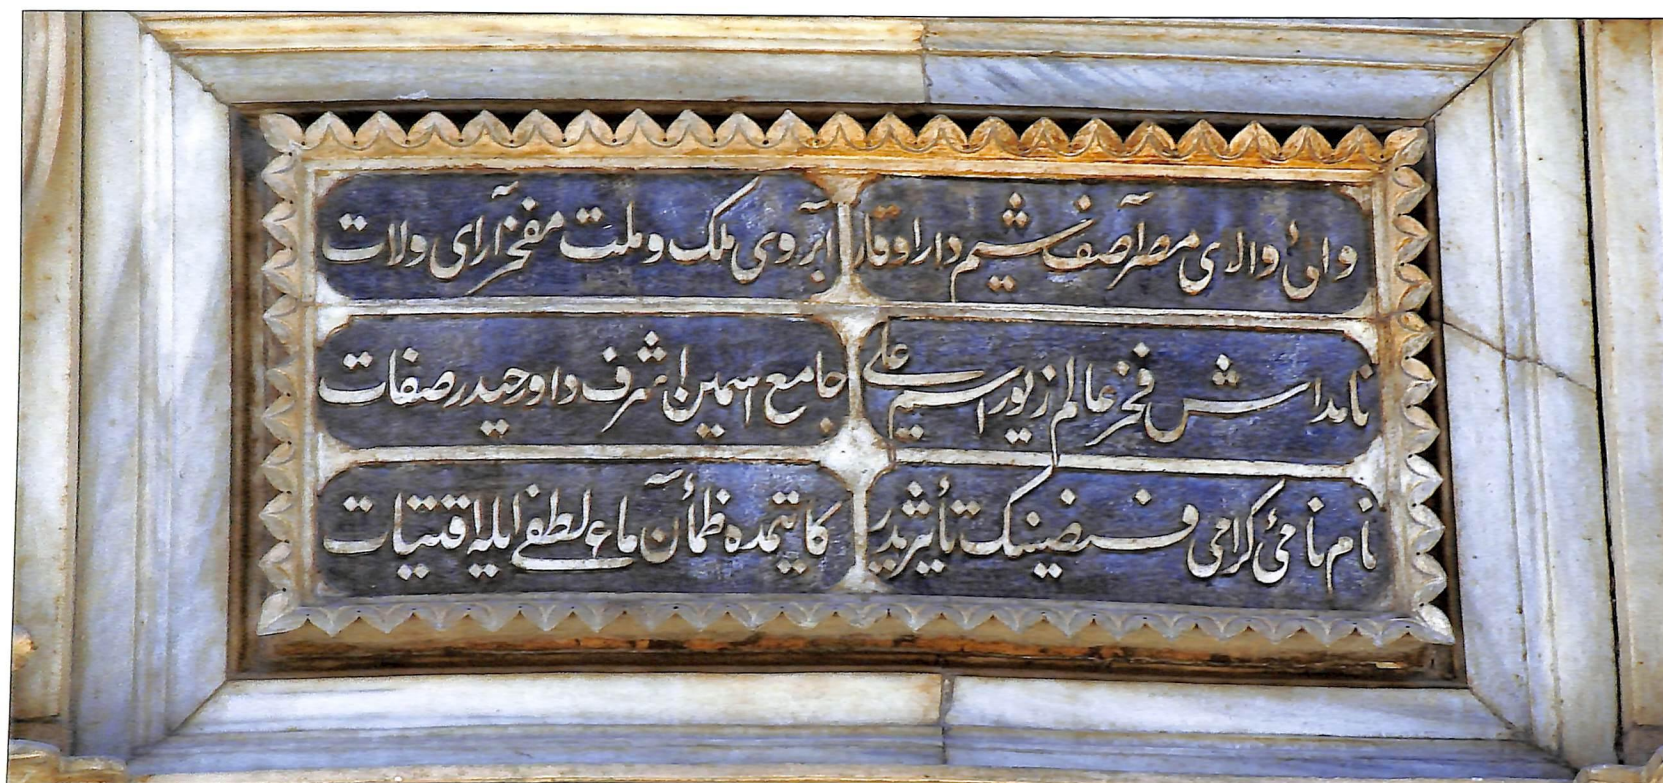 والی والای مصر آصف شیم دارا وقار آبروی ملک و ملت مفخر آرای ولات
نامداش فخر عالم زیور اسیم علی جامع اسمین اشرف داور حیدر صفات
نام نامئ کرامی فیضینک تأثیریدر کایتمده ظمآن ماء لطفی ایله اقتیات